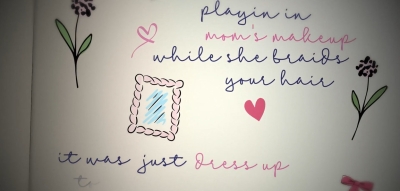 playin in
mom's makeup
while she braids
your hair
it was just dress up